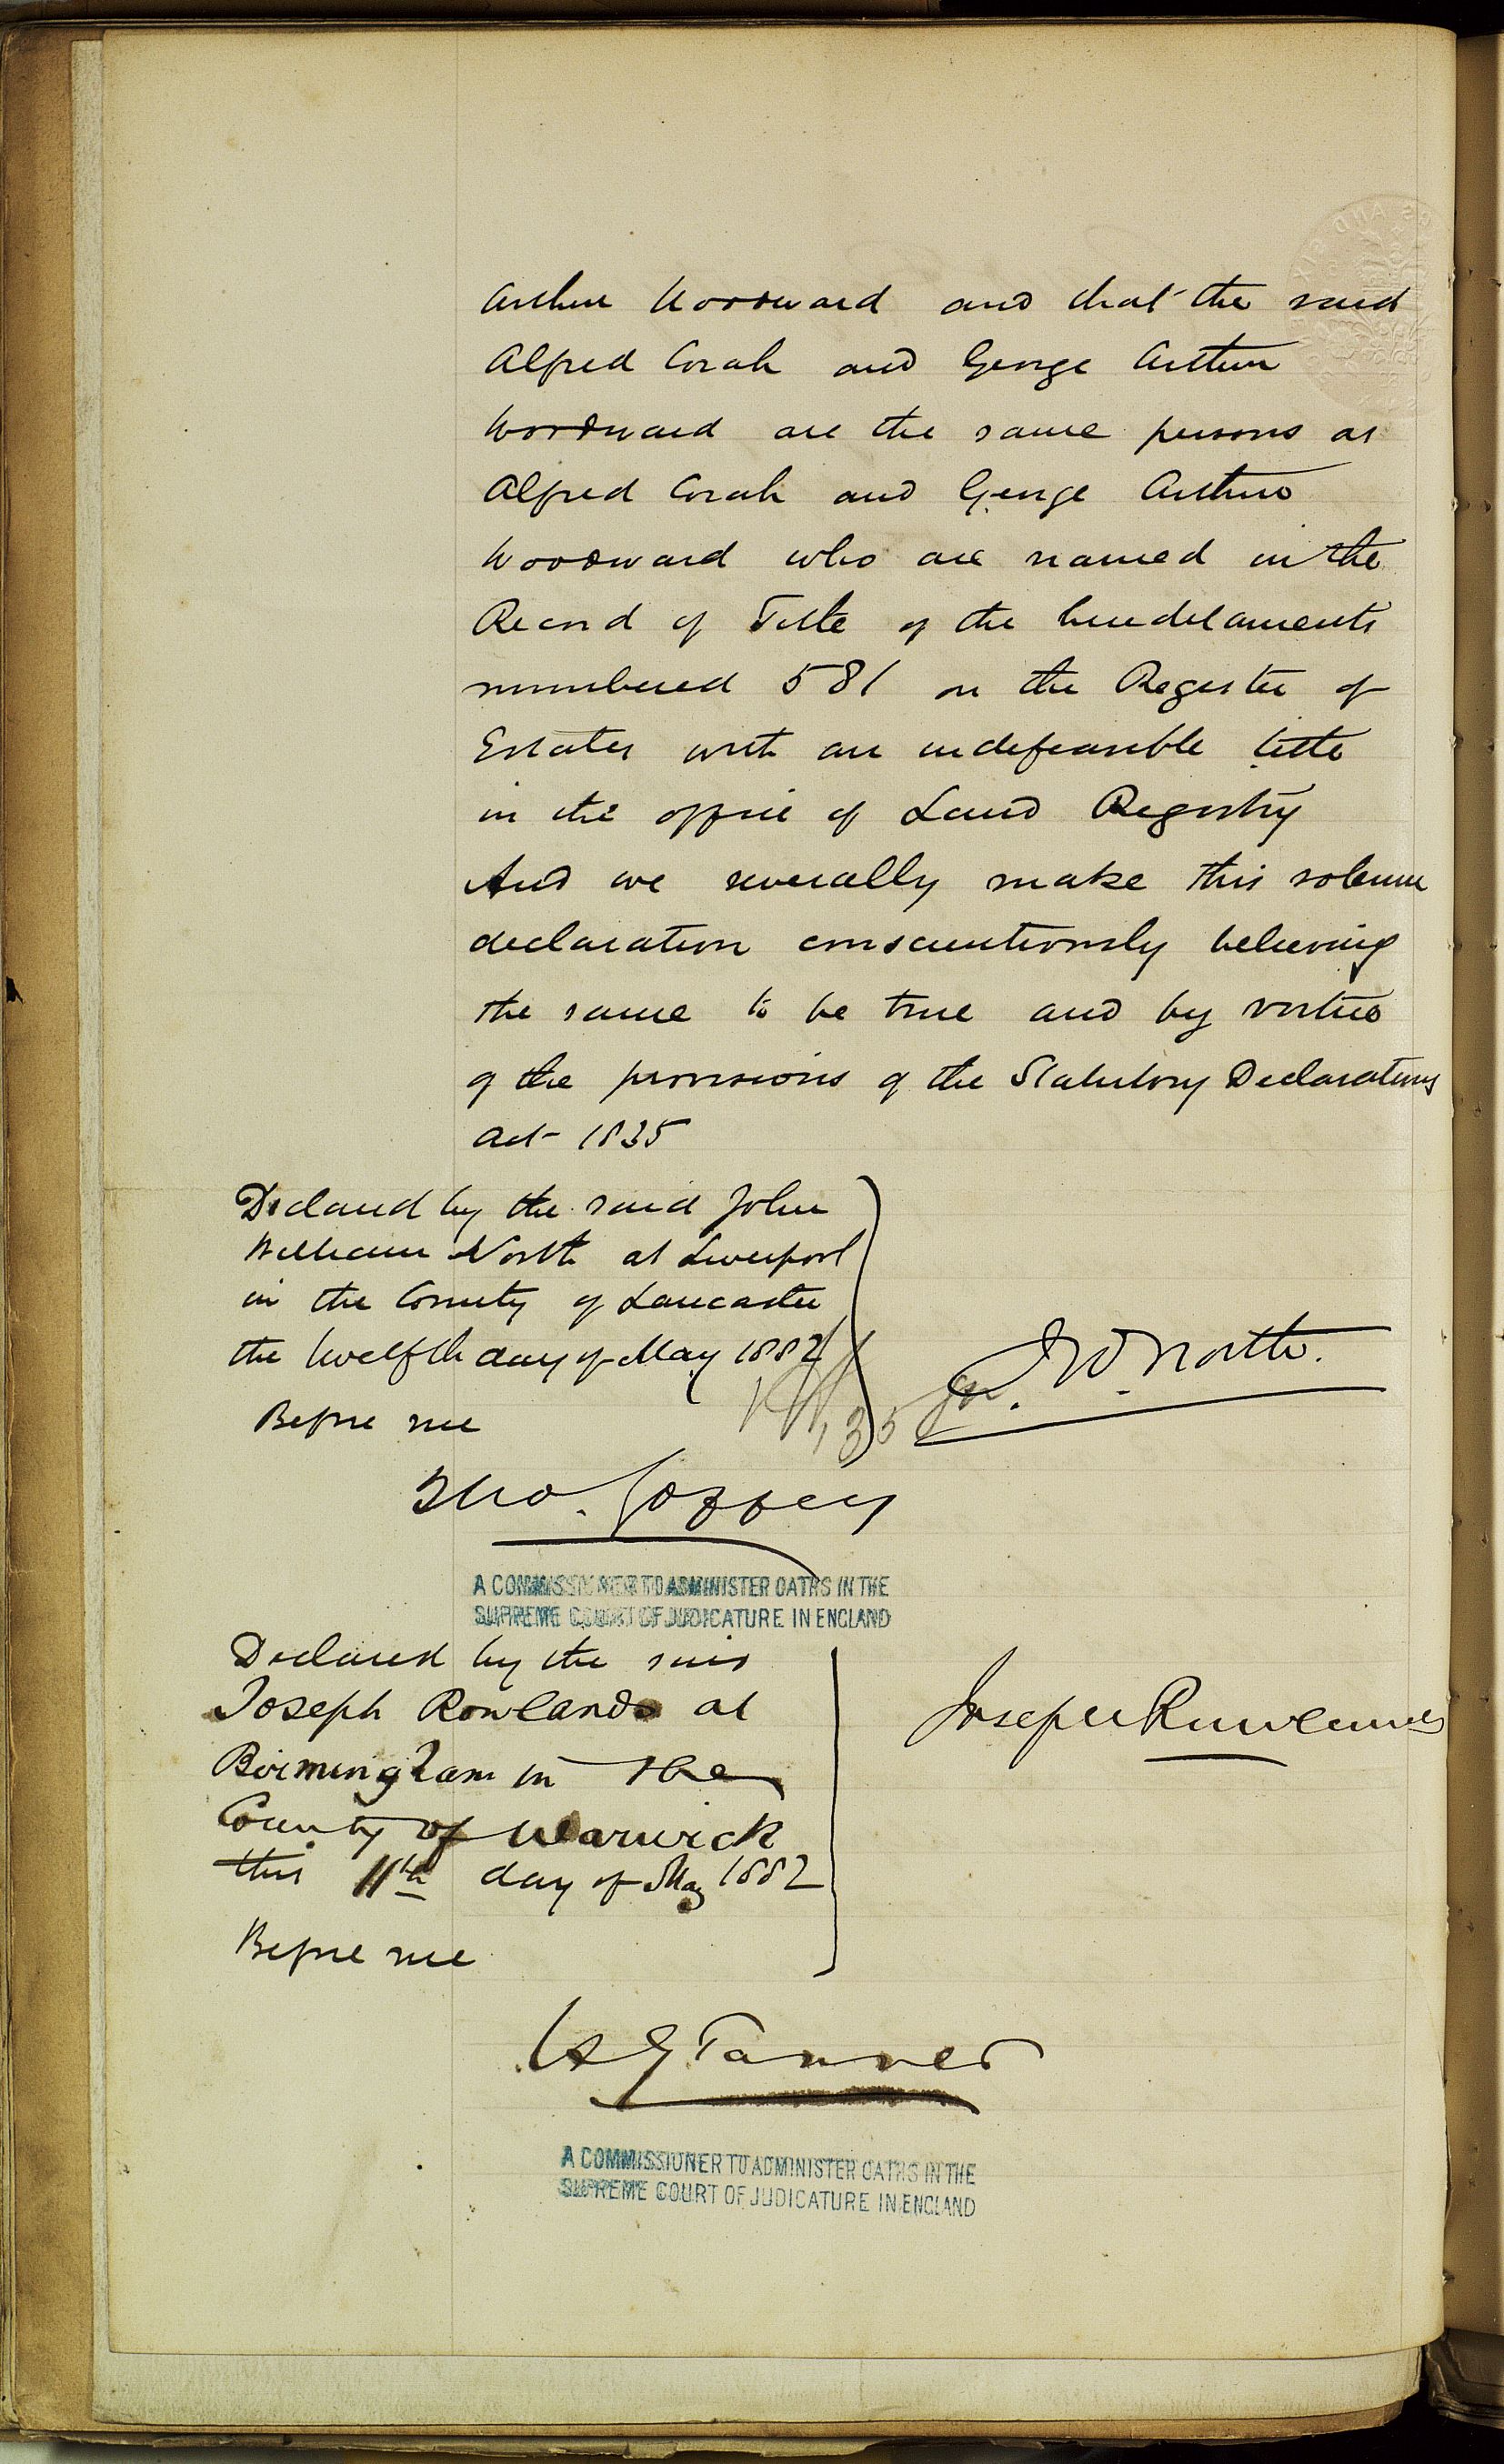 Arthur Woodward and that the said
Alfred Corah and George Arthur
Woodward are the same persons as
Alfred Corah and George Arthur
Woodward who are named in the
Record of Title of the hereditaments
numbered 581 on the Register of
Estates with an indefeasible title
in the office of Land Registry
And we severally make this solemn
declaration conscientiously believing
the same to be true and by virtue
of the provisions of the Statutory Declarations
Act 1835
Declared by the said John
William North at Liverpool
in the County of Lancaster
the twelfth day of May 1882
Before me
J W North.
Tho.
A COMMISSIONER TO ADMINISTER OATHS IN THE
SUPREME COURT OF JUDICATURE IN ENGLAND
Declared by the said
Joseph Rowlands at
Birmingham in the
County of Warwick
this 11th day of May 1882
Before me
Joseph Rowlands
Tanner
A COMMISSIONER TO ADMINISTER OATHS IN THE
SUPREME COURT OF JUDICATURE IN ENGLAND